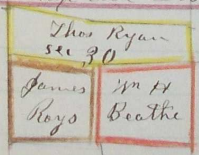 Thos Ryan
sec 30
James
Roys
Wm H
Beathe